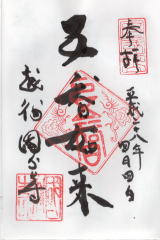 奉拝
平成二十八年
四月四日
五智如来
越後国分寺